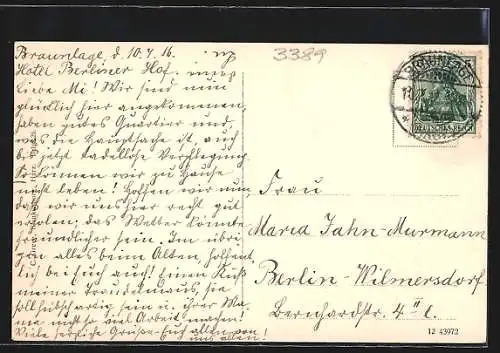 Braunlage, d. 10.7.16.
Hotel Berliner Hof.
Liebe Mi! Wir sind nun
glücklich hier angekommen,
haben gutes Quartier und
was die Hauptsache ist, auch
bis jetzt tadellose Verpflegung.
So können wir zu Hause
nicht leben! Hoffen wir nun
daß wir uns hier recht gut
erholen; das Wetter könnte
freundlicher sein. Im übri-
gen alles beim Alten, hoffent-
lich bei Euch auch! Einen Kuß
meiner Traudel
sein u. ihrer Ma-
ma nicht so viel Arbeit machen!
Viele herzliche Grüße Euch allen von
uns allen!
3389
DEUTSCHES REICH
Frau
Maria Jahn-Murmann
Berlin-Wilmersdorf
Bernhardstr. 4 II l.
12 43972